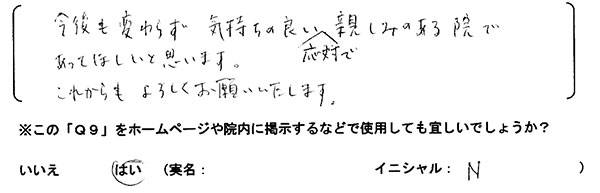 今後も変わらず 気持ちの良い 親しみのある 院で
応対で
あってほしいと思います。
これからも よろしくお願いいたします。
※この「Q9」をホームページや院内に掲示するなどで使用しても宜しいでしょうか?
いいえ はい (実名: イニシャル: N )